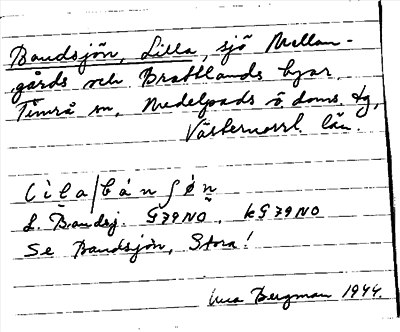 Bandsjön, Lilla, sjö Mellan-
gårds och Brattlands byar.
Timrå sn. Medelpads ö. doms. tg,
Västernorrl. län.
L. Bandsj. G79NO, kG79NO
Se Bandsjön, Stora!
Bergman 1944.